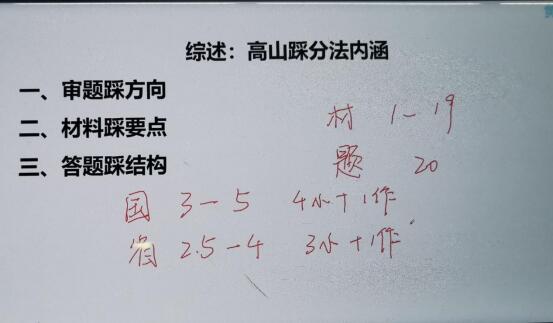 综述：高山踩分法内涵
一、审题踩方向
二、材料踩要点
材 1-19
三、答题踩结构
题 20
国 3-5 4小+1作
省 2.5-4 3小+1作